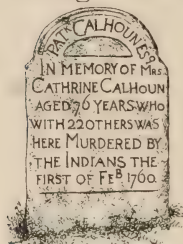 PATK CALHOUN ESQ.
IN MEMORY OF MRS.
CATHRINE CALHOUN
AGED 76 YEARS WHO
WITH 22 OTHERS WAS
HERE MURDERED BY
THE INDIANS THE
FIRST OF FEB 1760